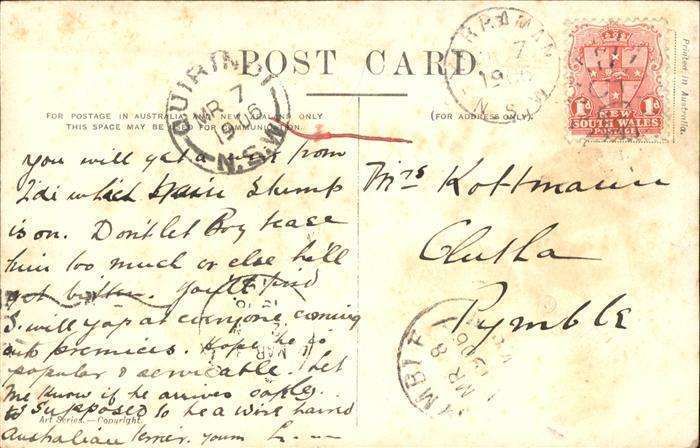 POST CARD.
FOR POSTAGE IN AUSTRALIA AND NEW ZEALAND ONLY
THIS SPACE MAY BE USED FOR COMMUNICATION.
(FOR ADDRESS ONLY)
Printed in Australia.
QUIRINDI
MR 7
1906
N.S.W
7
N.S.W
1d NEW 1d
SOUTH WALES
POSTAGE
you will get a from
which Stump
is on. Don't let Roy tease
him too much or else he'll
get bitten. You'll find
S. will yap at everyone coming
into premises. Hope he is
popular & serviceable. Let
me know if he arrives safely.
Supposed to be a wire haired
Australian terrier. yours
Art Series.—Copyright.
Mrs Kottmann
Clutha
Pymble
MR 8
1906